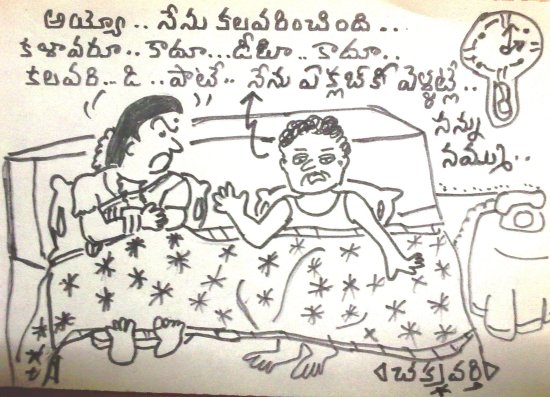 అయ్యో.. నేను కలవరించింది...
కాదూ... కాదూ..
కలవరి.. డి ..పాటే.. నేను ఏ క్లబ్‌కో వెళ్ళట్లే..
నన్ను
నమ్ము..
చక్రవర్తి